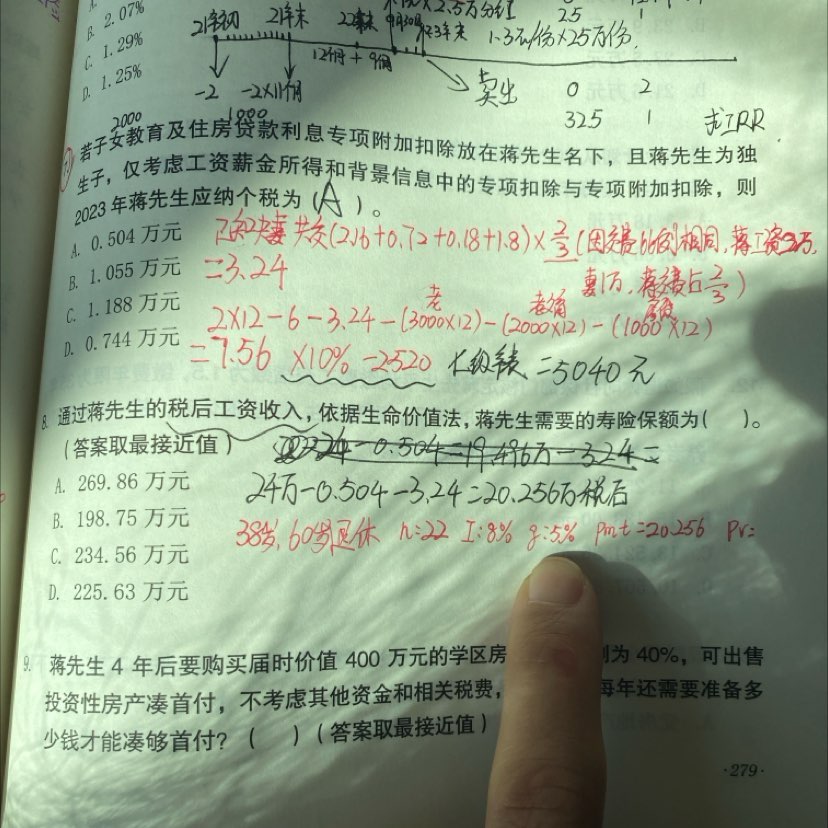 B. 2.07%
C. 1.29%
D. 1.25%
×2.5万份红 25
21年初 21年末 22年末 9月30日 23年末 1.3元/份×25万份.
12个月 + 9个月
-2 -2×11个月 卖出 0 2
2000 1000 325 1 求IRR
若子女教育及住房贷款利息专项附加扣除放在蒋先生名下，且蒋先生为独
生子，仅考虑工资薪金所得和背景信息中的专项扣除与专项附加扣除，则
2023 年蒋先生应纳个税为（A）。
A. 0.504 万元
B. 1.055 万元
C. 1.188 万元
D. 0.744 万元
夫妻共交(2.16+0.72+0.18+1.8)×2/3(因交费比例相同，蒋工资2万，
妻1万，蒋交费占2/3)
=3.24
老
2×12-6-3.24-(3000×12)-(2000×12)-(1000×12)
=7.56 ×10% -2520 =5040元
8. 通过蒋先生的税后工资收入，依据生命价值法，蒋先生需要的寿险保额为( )。
（答案取最接近值）
24-0.504=19.496万-3.24=
A. 269.86 万元
B. 198.75 万元
C. 234.56 万元
D. 225.63 万元
24万-0.504-3.24=20.256万税后
38岁，60岁退休 n:22 I:8% g:5% pmt=20.256 PV=
9. 蒋先生 4 年后要购买届时价值 400 万元的学区房 为 40%，可出售
投资性房产凑首付，不考虑其他资金和相关税费， 每年还需要准备多
少钱才能凑够首付？( )（答案取最接近值）
·279·